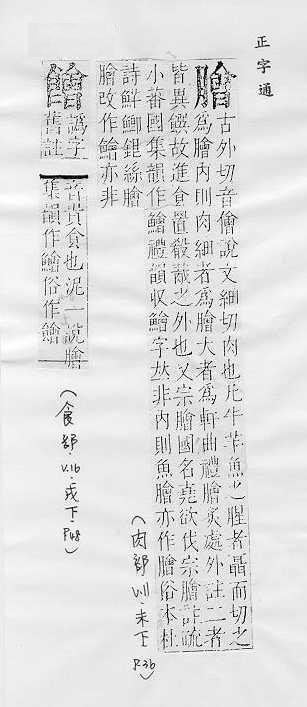 正字通
膾 古外切音儈說文細切肉也凡牛羊魚之腥者聶而切之
為膾內則肉細者為膾大者為軒曲禮膾炙處外註二者
皆異饌故進食置殽胾之外也又宗膾國名堯欲伐宗膾註疏
小蕃國集韻作鱠禮韻收鱠字𠀤非內則魚膾亦作膾俗本杜
詩鮮鯽銀絲膾
膾改作鱠亦非
(肉部 未下 P.36)
䭝 譌字
舊註
音貴食也泥一說膾
集韻作鱠俗作䭝
(食部.V.16.戌下.P48)